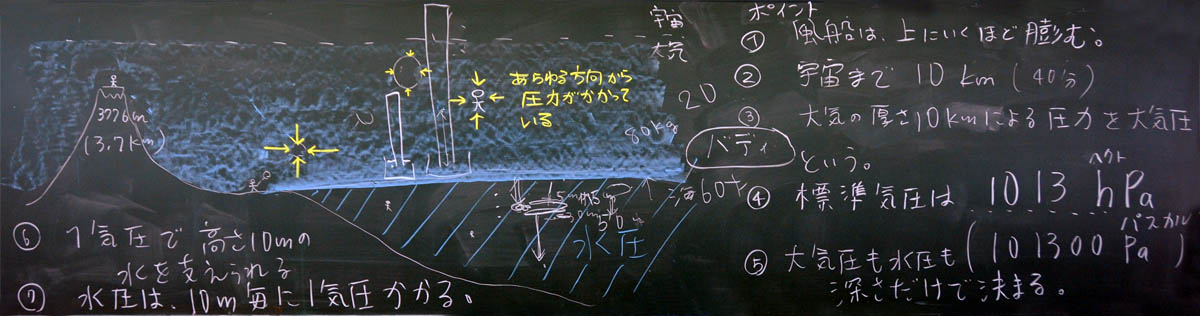 宇宙
大気
3776m
(3.7km)
あらゆる方向から
圧力がかかって
いる
20
80kg
バディ
海60+
水圧
⑥ 1気圧で高さ10mの
水を支えられる
⑦ 水圧は、10m毎に1気圧かかる。
ポイント
① 風船は、上にいくほど膨む。
② 宇宙まで 10 km (40分)
③ 大気の厚さ10kmによる圧力を大気圧
という。
ヘクト
④ 標準気圧は 1013 hPa
パスカル
(101300 Pa)
⑤ 大気圧も水圧も
深さだけで決まる。